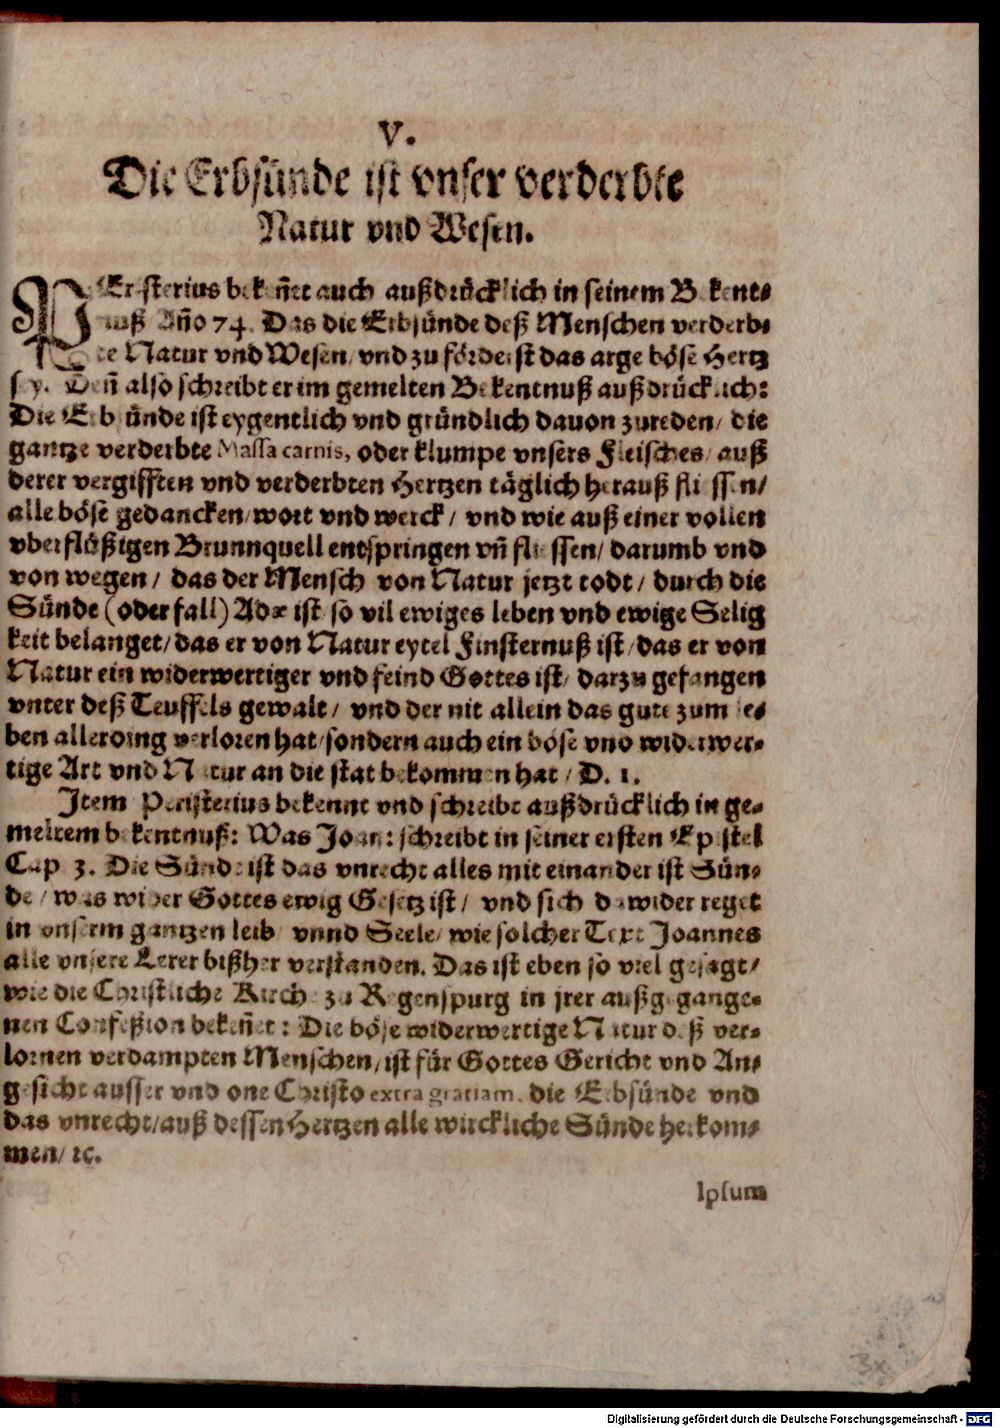 V.
Die Erbsünde ist vnser verderbte
Natur vnd Wesen.
PEristerius bekeñet auch außdrücklich in seinem Bekent⸗
nuß Año 74. Das die Erbsünde deß Menschen verderb⸗
te Natur vnd Wesen/ vnd zu förderist das arge böse Hertz
sey. Deñ also schreibt er im gemelten Bekentnuß außdrücklich:
Die Erbsünde ist eygentlich vnd gründlich dauon zureden/ die
gantze verderbte Massa carnis, oder klumpe vnsers Fleisches/ auß
derer vergifften vnd verderbten Hertzen täglich herauß fliessen/
alle böse gedancken/ wort vnd werck/ vnd wie auß einer vollen
vberflüßigen Brunnquell entspringen vñ fliessen/ darumb vnd
von wegen/ das der Mensch von Natur jetzt todt/ durch die
Sünde (oder fall) Adæ ist so vil ewiges leben vnd ewige Selig
keit belanget/ das er von Natur eytel Finsternuß ist/ das er von
Natur ein widerwertiger vnd feind Gottes ist/ darzu gefangen
vnter deß Teuffels gewalt/ vnd der nit allein das gute zum le⸗
ben allerding verloren hat/ sondern auch ein böse vnd widerwer⸗
tige Art vnd Natur an die stat bekommen hat/ D. 1.
Item Peristerius bekennt vnd schreibt außdrücklich in ge⸗
meltem bekentnuß: Was Joan: schreibt in seiner ersten Epistel
Cap 3. Die Sünde ist das vnrecht alles mit einander ist Sün⸗
de/ was wider Gottes ewig Gesetz ist/ vnd sich dawider reget
in vnserm gantzen leib vnnd Seele/ wie solcher Text Joannes
alle vnsere Lerer bißher verstanden. Das ist eben so viel gesagt/
wie die Christliche Kirch zu Regenspurg in jrer außgegange⸗
nen Confeßion bekeñet: Die böse widerwertige Natur deß ver⸗
lornen verdampten Menschen/ ist für Gottes Gericht vnd An⸗
gesicht ausser vnd one Christo extra gratiam. die Erbsünde vnd
das vnrecht/ auß dessen Hertzen alle wirckliche Sünde herkom⸗
men/ ꝛc.
Ipsum
3x
Digitalisierung gefördert durch die Deutsche Forschungsgemeinschaft - DFG